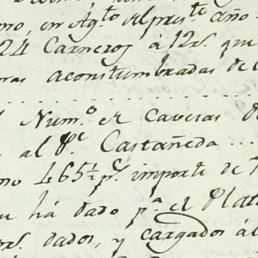 mo, en Ag.to del pres.te año
24 Carneros á 12 rs. que
ras acostumbradas de
Num.o de Caveras de
al P.e Castañeda
mo 465½ p.s importe de
ha dado p.a el Plat
dados, y cargados ál